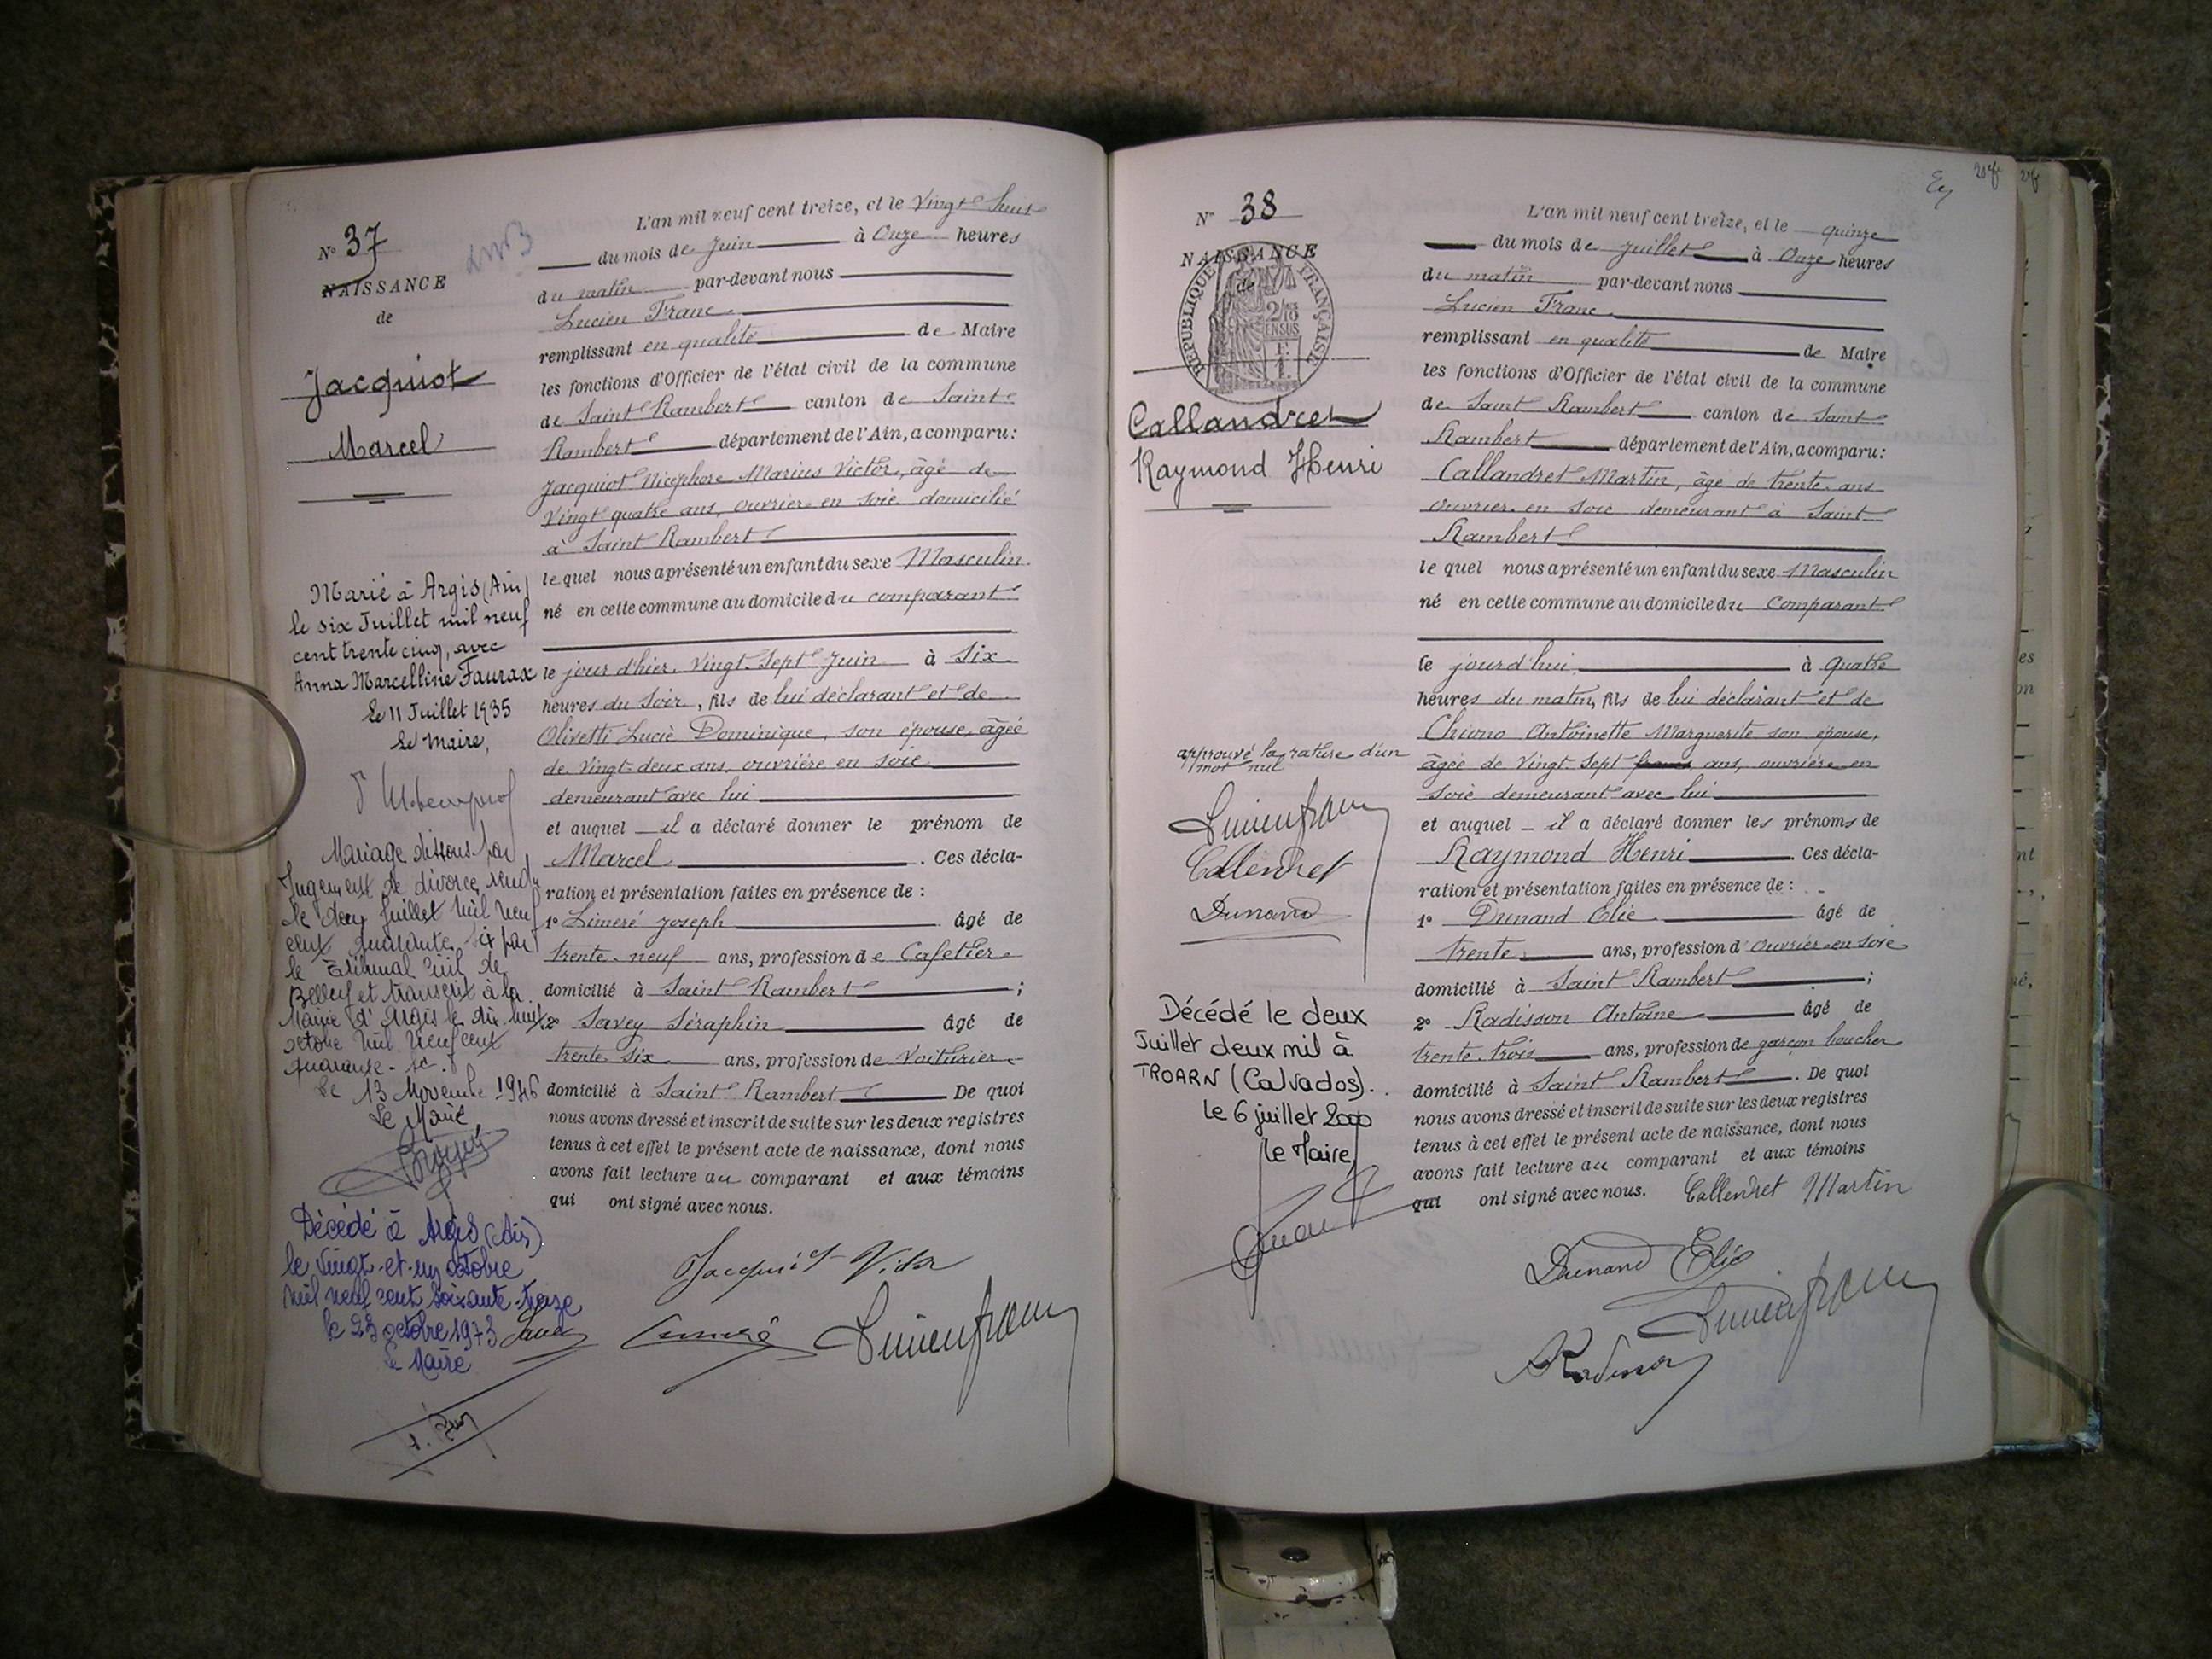 N° 37
NAISSANCE
de
Jacquiot
Marcel
Marié à Argis (Ain)
le six Juillet mil neuf
cent trente cinq, avec
Anna Marcelline Faurax
Le 11 Juillet 1935
Le Maire,
Mariage dissous par
Jugement de divorce rendu
le deux Juillet mil neuf
cent quarante six par
le Tribunal Civil de
Belley et transcrit à la
Mairie d'Argis le dix huit
octobre mil neuf cent
quarante-six.
Le 13 Novembre 1946
Le Maire
Décédé à Argis (Ain)
le vingt-et-un octobre
mil neuf cent soixante-treize
le 23 octobre 1973
Le Maire
L'an mil neuf cent treize, et le Vingt huit
du mois de Juin à Onze heures
du matin par-devant nous
Lucien Franc
remplissant en qualité de Maire
les fonctions d'Officier de l'état civil de la commune
de Saint Rambert canton de Saint
Rambert département de l'Ain, a comparu :
Jacquiot Nicéphore Marius Victor, âgé de
Vingt quatre ans, ouvrier en soie domicilié
à Saint Rambert
le quel nous a présenté un enfant du sexe Masculin
né en cette commune au domicile du comparant
le jour d'hier Vingt Sept Juin à Six
heures du soir, fils de lui déclarant et de
Olivetti Lucie Dominique, son épouse, âgée
de Vingt-deux ans, ouvrière en soie
demeurant avec lui
et auquel il a déclaré donner le prénom de
Marcel. Ces décla-
ration et présentation faites en présence de :
1° Limeré Joseph âgé de
trente-neuf ans, profession de Cafetier
domicilié à Saint Rambert ;
2° Savey Séraphin âgé de
trente six ans, profession de Voiturier
domicilié à Saint Rambert. De quoi
nous avons dressé et inscrit de suite sur les deux registres
tenus à cet effet le présent acte de naissance, dont nous
avons fait lecture au comparant et aux témoins
qui ont signé avec nous.
Jacquiot Victor
Savey Limeré Lucien Franc
N° 38
NAISSANCE
de
REPUBLIQUE FRANÇAISE
Callandret
Raymond Henri
approuvé la rature d'un
mot nul
Lucien Franc
Callendret
Dunand
Décédé le deux
Juillet deux mil à
TROARN (Calvados).
Le 6 juillet 2000
le Maire,
L'an mil neuf cent treize, et le quinze
du mois de Juillet à Onze heures
du matin par-devant nous
Lucien Franc
remplissant en qualité de Maire
les fonctions d'Officier de l'état civil de la commune
de Saint Rambert canton de Saint
Rambert département de l'Ain, a comparu :
Callandret Martin, âgé de trente ans
ouvrier en soie demeurant à Saint
Rambert
le quel nous a présenté un enfant du sexe Masculin
né en cette commune au domicile du Comparant
le jourd'hui à quatre
heures du matin, fils de lui déclarant et de
Chiono Antoinette Marguerite son épouse,
âgée de Vingt Sept ans, ouvrière en
soie demeurant avec lui
et auquel il a déclaré donner les prénoms de
Raymond Henri. Ces décla-
ration et présentation faites en présence de :
1° Dunand Elie âgé de
trente ans, profession d'ouvrier en soie
domicilié à Saint Rambert ;
2° Radisson Antoine âgé de
trente-trois ans, profession de garçon boucher
domicilié à Saint Rambert. De quoi
nous avons dressé et inscrit de suite sur les deux registres
tenus à cet effet le présent acte de naissance, dont nous
avons fait lecture au comparant et aux témoins
qui ont signé avec nous. Callendret Martin
Dunand Elie
Lucien Franc
Radisson